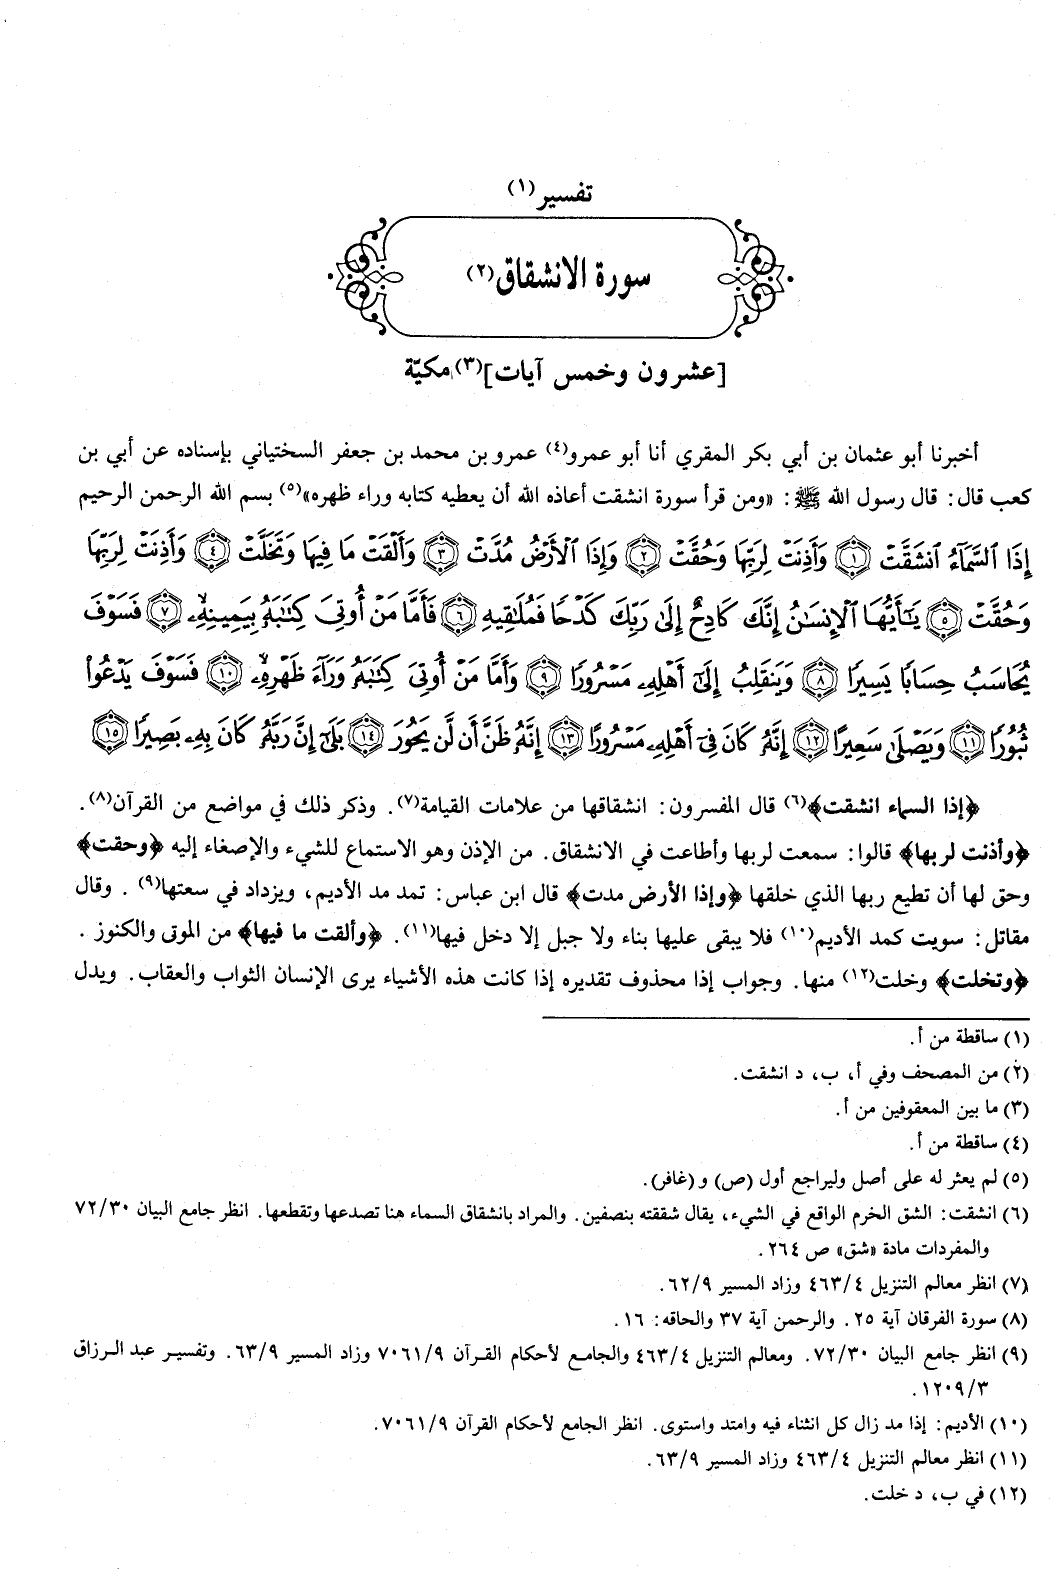 تفسير(١)
سورة الانشقاق(٢)
[عشرون وخمس آيات](٣) مكيّة
أخبرنا أبو عثمان بن أبي بكر المقري أنا أبو عمرو(٤) عمرو بن محمد بن جعفر السختياني بإسناده عن أبي بن
كعب قال: قال رسول الله ﷺ: «ومن قرأ سورة انشقت أعاذه الله أن يعطيه كتابه وراء ظهره»(٥) بسم الله الرحمن الرحيم
إِذَا ٱلسَّمَآءُ ٱنشَقَّتْ ﴿١﴾ وَأَذِنَتْ لِرَبِّهَا وَحُقَّتْ ﴿٢﴾ وَإِذَا ٱلْأَرْضُ مُدَّتْ ﴿٣﴾ وَأَلْقَتْ مَا فِيهَا وَتَخَلَّتْ ﴿٤﴾ وَأَذِنَتْ لِرَبِّهَا
وَحُقَّتْ ﴿٥﴾ يَٰٓأَيُّهَا ٱلْإِنسَٰنُ إِنَّكَ كَادِحٌ إِلَىٰ رَبِّكَ كَدْحًا فَمُلَٰقِيهِ ﴿٦﴾ فَأَمَّا مَنْ أُوتِىَ كِتَٰبَهُۥ بِيَمِينِهِۦ ﴿٧﴾ فَسَوْفَ
يُحَاسَبُ حِسَابًا يَسِيرًا ﴿٨﴾ وَيَنقَلِبُ إِلَىٰٓ أَهْلِهِۦ مَسْرُورًا ﴿٩﴾ وَأَمَّا مَنْ أُوتِىَ كِتَٰبَهُۥ وَرَآءَ ظَهْرِهِۦ ﴿١٠﴾ فَسَوْفَ يَدْعُوا۟
ثُبُورًا ﴿١١﴾ وَيَصْلَىٰ سَعِيرًا ﴿١٢﴾ إِنَّهُۥ كَانَ فِىٓ أَهْلِهِۦ مَسْرُورًا ﴿١٣﴾ إِنَّهُۥ ظَنَّ أَن لَّن يَحُورَ ﴿١٤﴾ بَلَىٰٓ إِنَّ رَبَّهُۥ كَانَ بِهِۦ بَصِيرًا ﴿١٥﴾
﴿إذا السماء انشقت﴾(٦) قال المفسرون: انشقاقها من علامات القيامة(٧). وذكر ذلك في مواضع من القرآن(٨).
﴿وأذنت لربها﴾ قالوا: سمعت لربها وأطاعت في الانشقاق. من الإذن وهو الاستماع للشيء والإصغاء إليه ﴿وحقت﴾
وحق لها أن تطيع ربها الذي خلقها ﴿وإذا الأرض مدت﴾ قال ابن عباس: تمد مد الأديم، ويزداد في سعتها(٩). وقال
مقاتل: سويت كمد الأديم(١٠) فلا يبقى عليها بناء ولا جبل إلا دخل فيها(١١). ﴿وألقت ما فيها﴾ من الموتى والكنوز.
﴿وتخلت﴾ وخلت(١٢) منها. وجواب إذا محذوف تقديره إذا كانت هذه الأشياء يرى الإنسان الثواب والعقاب. ويدل
(١) ساقطة من أ.
(٢) من المصحف وفي أ، ب، د انشقت.
(٣) ما بين المعقوفين من أ.
(٤) ساقطة من أ.
(٥) لم يعثر له على أصل وليراجع أول (ص) و(غافر).
(٦) انشقت: الشق الخرم الواقع في الشيء، يقال شققته بنصفين. والمراد بانشقاق السماء هنا تصدعها وتقطعها. انظر جامع البيان ٧٢/٣٠
والمفردات مادة «شق» ص ٢٦٤.
(٧) انظر معالم التنزيل ٤٦٣/٤ وزاد المسير ٦٢/٩.
(٨) سورة الفرقان آية ٢٥. والرحمن آية ٣٧ والحاقه: ١٦.
(٩) انظر جامع البيان ٧٢/٣٠. ومعالم التنزيل ٤٦٣/٤ والجامع لأحكام القرآن ٧٠٦١/٩ وزاد المسير ٦٣/٩. وتفسير عبد الرزاق
١٢٠٩/٣.
(١٠) الأديم: إذا مد زال كل انثناء فيه وامتد واستوى. انظر الجامع لأحكام القرآن ٧٠٦١/٩.
(١١) انظر معالم التنزيل ٤٦٣/٤ وزاد المسير ٦٣/٩.
(١٢) في ب، د خلت.